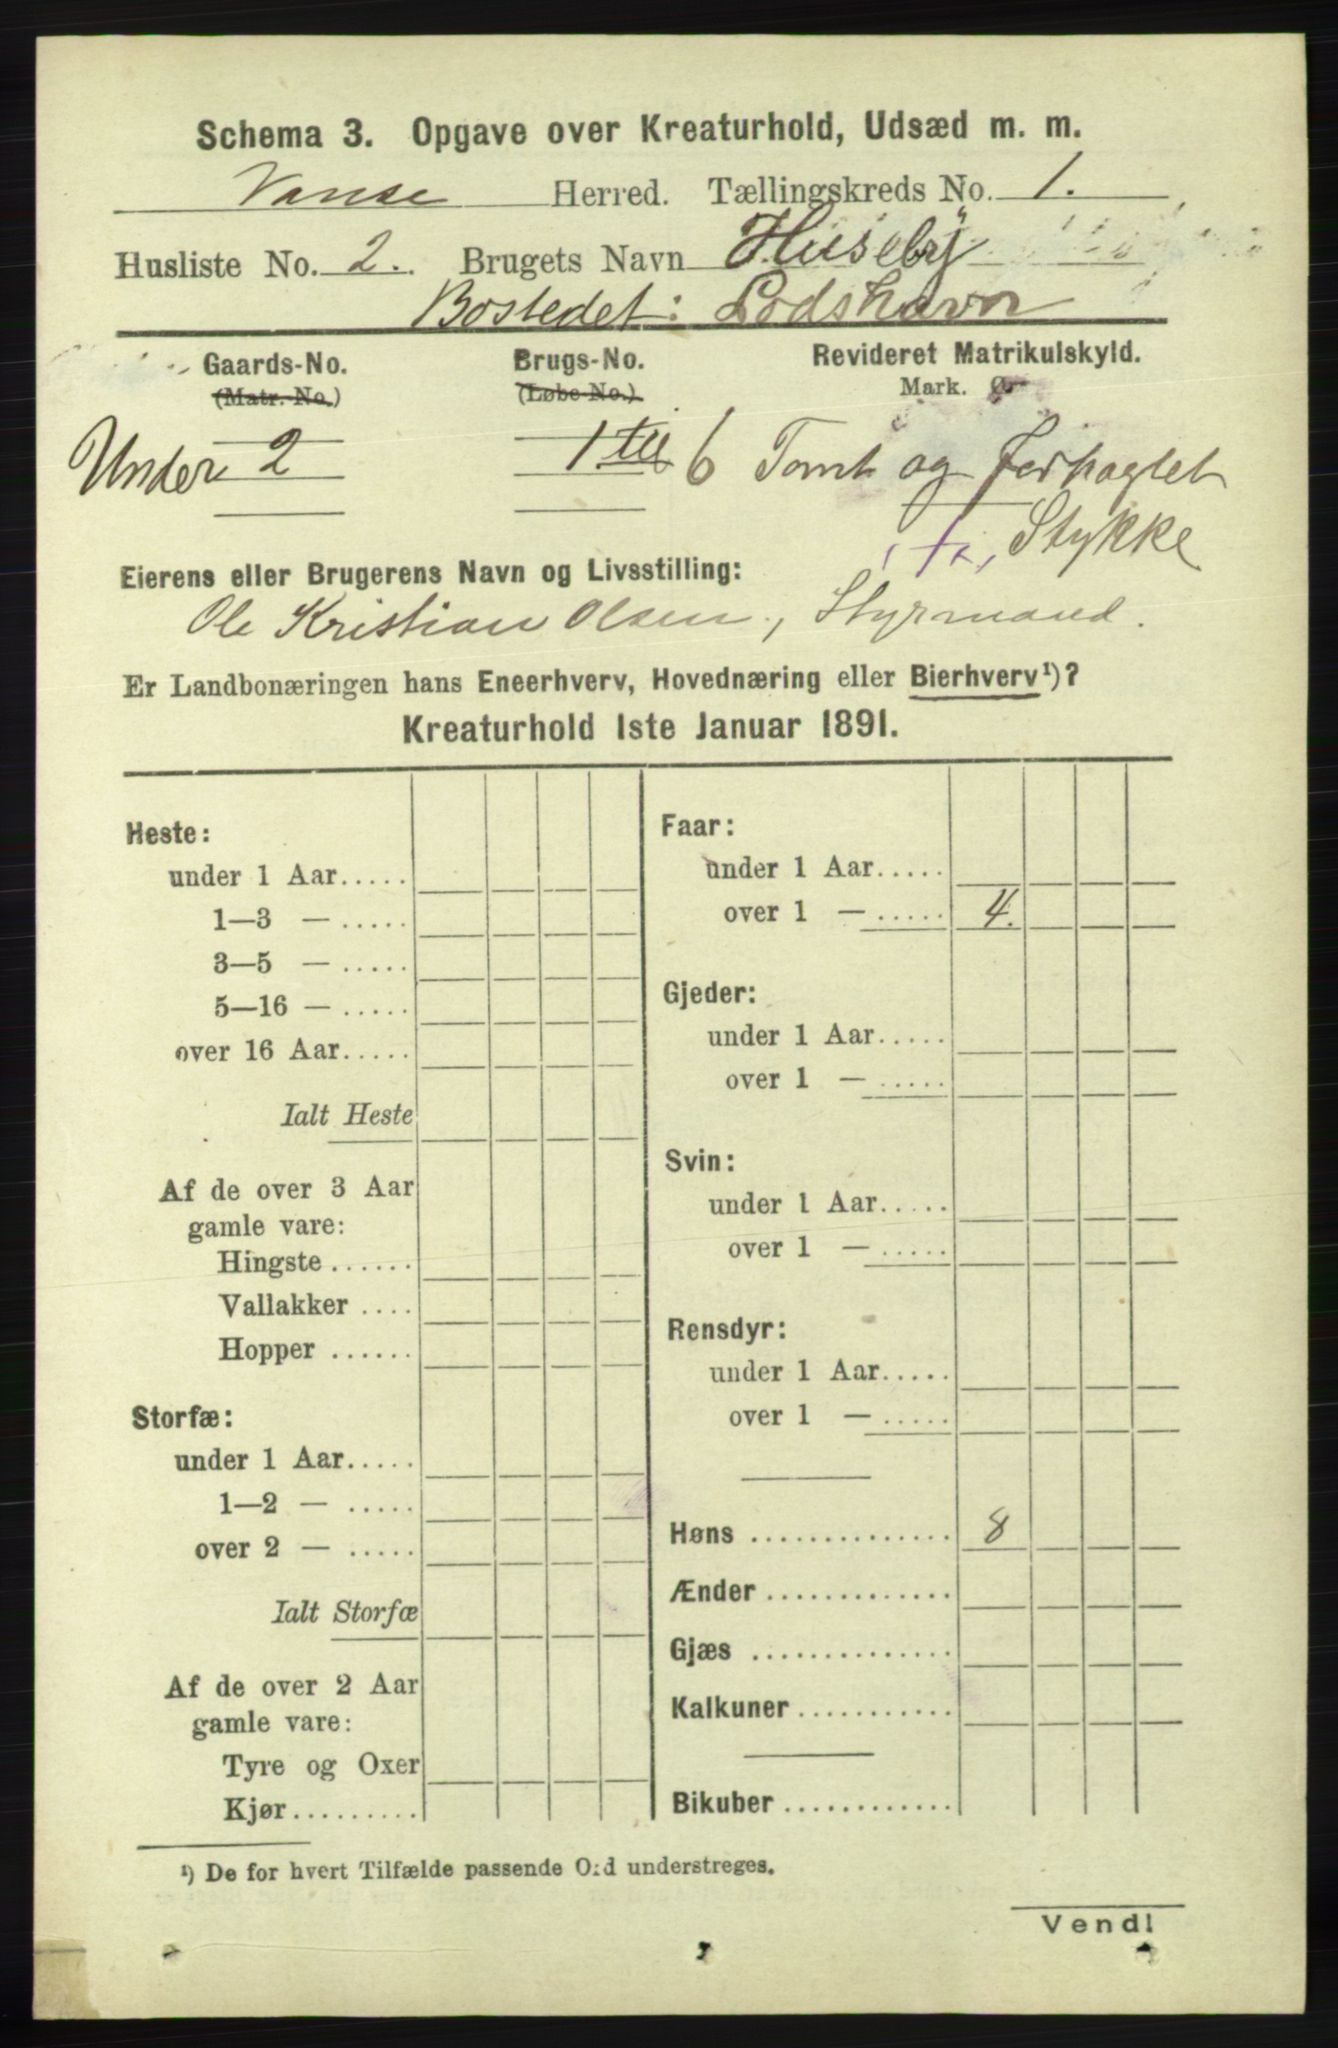 Schema 3. Opgave over Kreaturhold, Udsæd m. m.
Vanse Herred. Tællingskreds No. 1.
Husliste No. 2. Brugets Navn Huseby
Bostedet: Lodshavn
Gaards-No. Brugs-No. Revideret Matrikulskyld.
(Matr.-No.) (Løbe-No.) Mark. Ør
Under 2 1 til 6 Tomt og Forpagtet
Stykke
Eierens eller Brugerens Navn og Livsstilling:
Ole Kristian Olsen, Styrmand.
Er Landbonæringen hans Eneerhverv, Hovednæring eller Bierhverv¹)?
Kreaturhold 1ste Januar 1891.
Heste:
under 1 Aar.....
1—3 — .....
3—5 — .....
5—16 — .....
over 16 Aar.....
Ialt Heste
Af de over 3 Aar
gamle vare:
Hingste ......
Vallakker ....
Hopper ......
Storfæ:
under 1 Aar.....
1—2 — .....
over 2 — .....
Ialt Storfæ
Af de over 2 Aar
gamle vare:
Tyre og Oxer
Kjør.........
Faar:
under 1 Aar.....
over 1 — ..... 4.
Gjeder:
under 1 Aar.....
over 1 — .....
Svin:
under 1 Aar.....
over 1 — .....
Rensdyr:
under 1 Aar.....
over 1 — .....
Høns .............. 8
Ænder .............
Gjæs ..............
Kalkuner ...........
Bikuber ............
¹) De for hvert Tilfælde passende Ord understreges.
Vend!